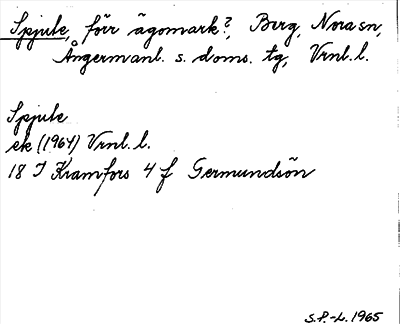 Spjute, förr ägomark?, Berg, Nora sn,
Ångermanl. s. doms. tg, Vrnl. l.
Spjute
ek (1964) Vrnl. l.
18 I Kramfors 4 f Germundsön
S.P.-L. 1965